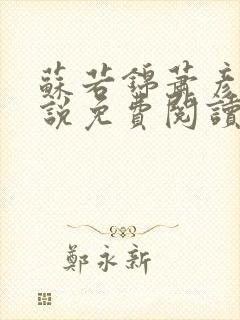 蘇若錦蕭彥
說免費閱讀
鄭永新